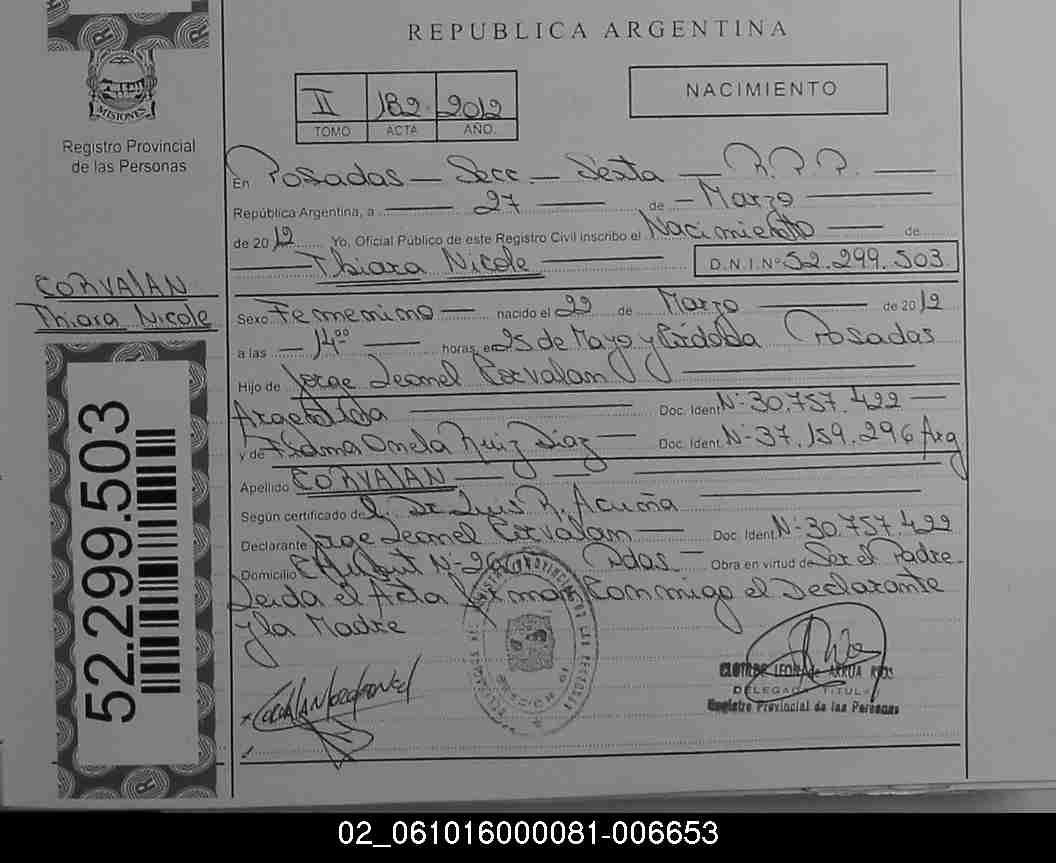 REPUBLICA ARGENTINA
MISIONES
Registro Provincial
de las Personas
II 182 2012
TOMO ACTA AÑO
NACIMIENTO
En Posadas - Secc. - Sexta - R.P.P.
República Argentina, a 27 de - Marzo
de 2012 Yo, Oficial Público de este Registro Civil inscribo el Nacimiento de
Thiara Nicole D.N.I.Nº 52.299.503
CORVALAN
Thiara Nicole
Sexo Femenino nacido el 22 de Marzo de 2012
a las - 14⁰⁰ horas, en 25 de Mayo y Córdoba Posadas
Hijo de Jorge Leonel Corvalan y
Argentina Doc. Ident. Nº 30.757.422
y de Ruiz Diaz Doc. Ident. Nº 37.159.296 Arg
Apellido CORVALAN
Según certificado del Dr Luis R. Acuña
Declarante Jorge Leonel Corvalan Doc. Ident. Nº 30.757.422
Domicilio Pdas. - Obra en virtud de Ser el Padre -
Leida el Acta Firman Conmigo el Declarante
y la Madre
52.299.503
DELEGADA TITULAR
Registro Provincial de las Personas
02_061016000081-006653